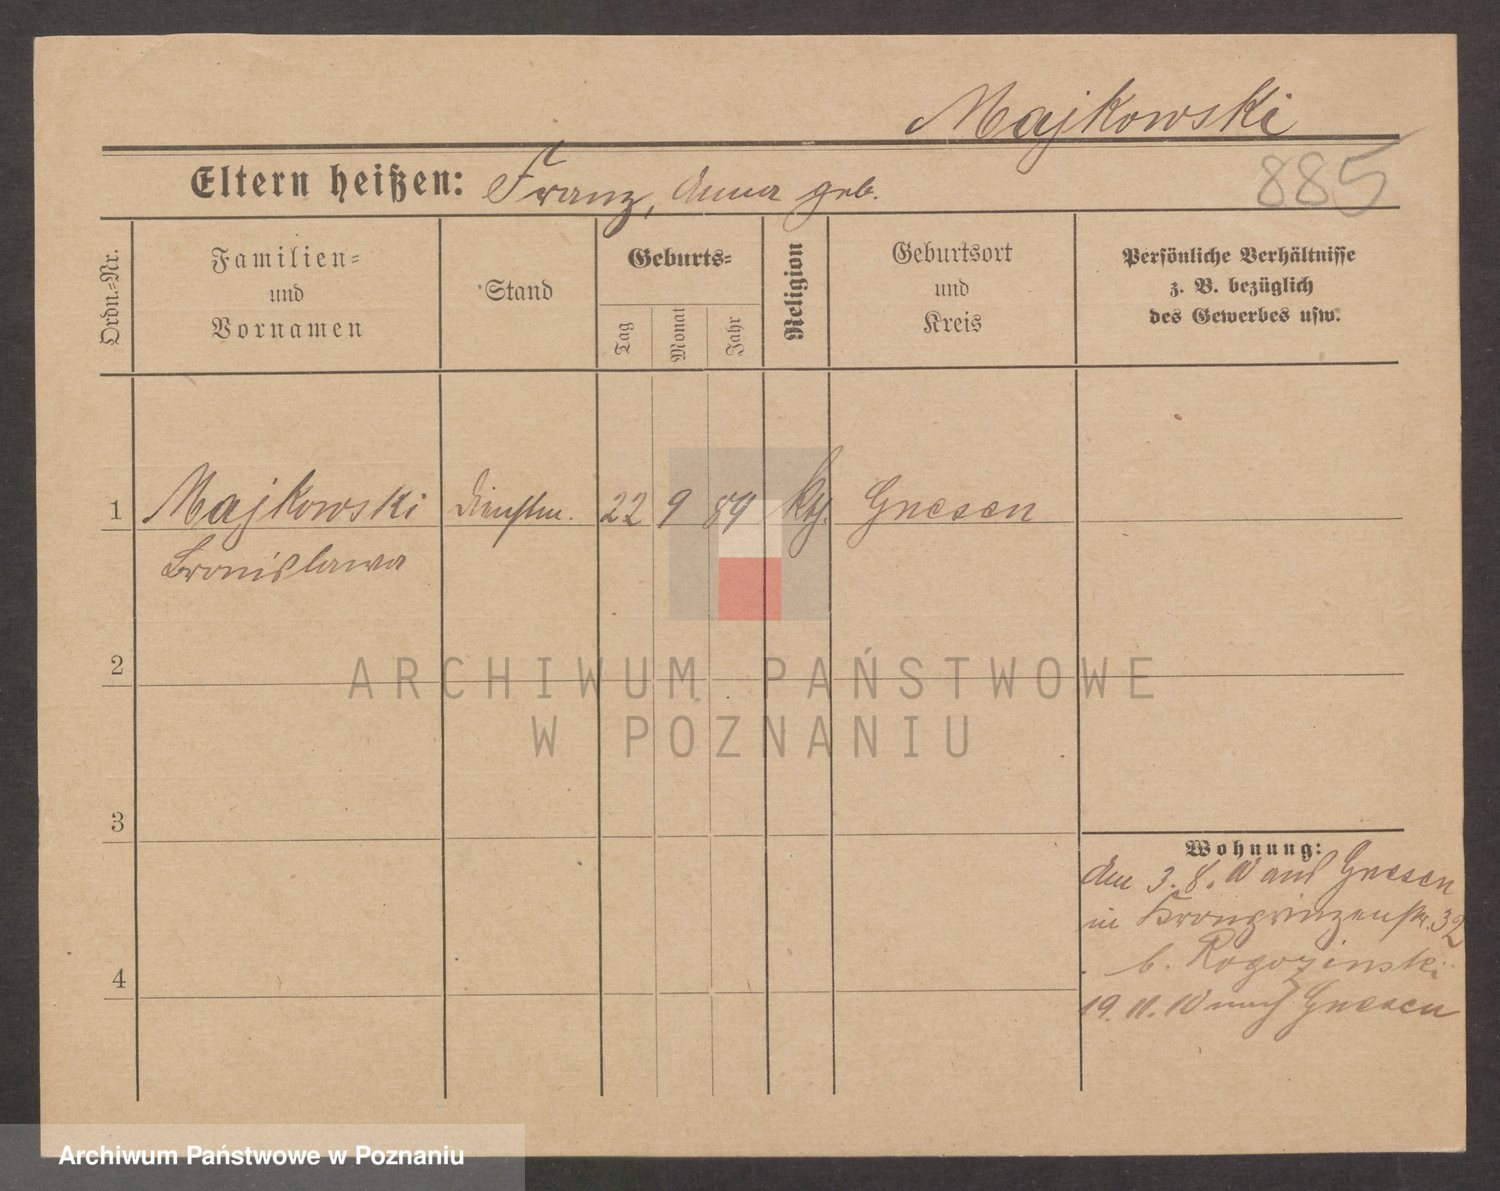 Majkowski
885
Eltern heißen: Franz, Anna geb.
Ordn.-Nr.
Familien- und Vornamen
Stand
Geburts-
Tag
Monat
Jahr
Religion
Geburtsort und Kreis
Persönliche Verhältnisse
z. B. bezüglich
des Gewerbes usw.
1 Majkowski Dienstm. 22 9 89 kth. Gnesen
Bronislawa
2
3
4
Wohnung:
den 3. 8. 10 aus Gnesen
in Kronprinzenstr. 32
b. Rogozinski
19. 11. 10 nach Gnesen
ARCHIWUM PAŃSTWOWE
W POZNANIU
Archiwum Państwowe w Poznaniu